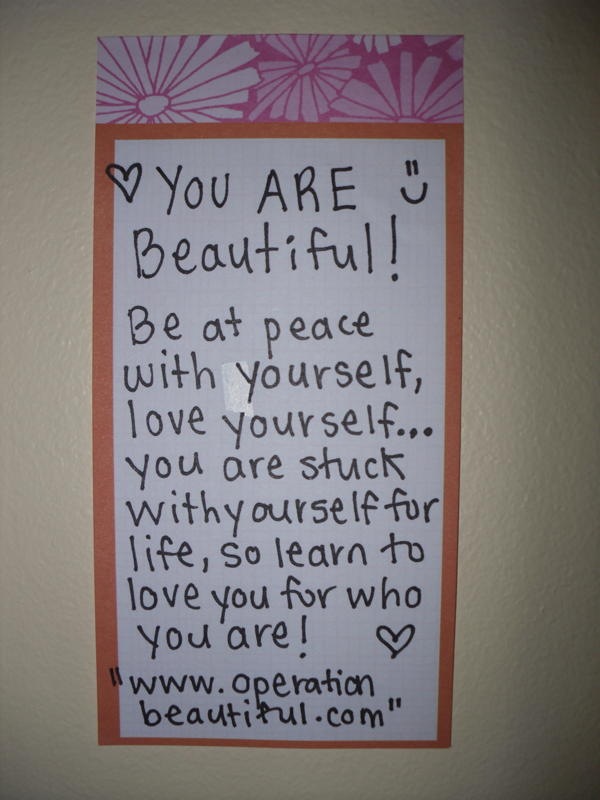 ♡ YOU ARE
Beautiful!
Be at peace
with yourself,
love yourself...
you are stuck
withyourself for
life, so learn to
love you for who
you are! ♡
"www.operation
beautiful.com"